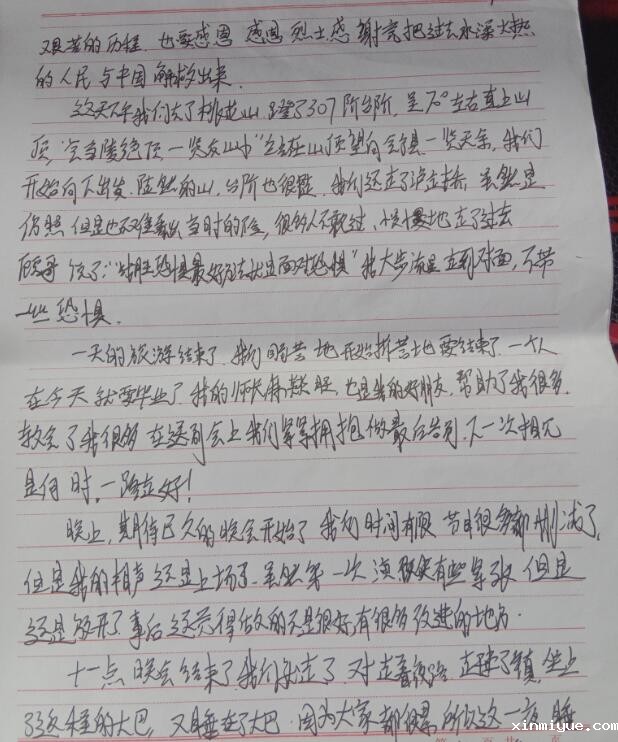 艰苦的历程，也要感恩 感恩烈士感谢党把过去水深火热
的人民与中国解救出来.
这天下午我们去了桃花山，登了307阶台阶，呈70°左右直上山
顶，"会当凌绝顶一览众山小"站在山顶望向 一览无余，我们
开始向下出发，陡然的山，台阶也很 我们还走了 虽然是
仿照 但是也不难看出当时的险，很多人不敢过，小心慢慢地走了过去
说了："战胜恐惧最好方法就是面对恐惧"我大步流星 走到对面，不带
一些恐惧.
一天的旅游结束了，我们 地开始 地要结束了 一个人
在今天就要毕业了 我的师 ，也是我的好朋友，帮助了我很多.
教会了我很多 在送别会上我们紧紧拥抱做最后告别.下一次相见
是何时，一路走好！
晚上，期待已久的晚会开始了 我的时间有限 节目很多都删减了，
但是我的相声还是上场了.虽然第一次演 有些紧张 但是
还是放开了 事后还觉得做的不是很好有很多改进的地方.
十一点 晚会结束了我们就走了 走着夜路 走 了镇，坐上
了返程的大巴，又睡在了大巴.因为大家都很累 所以这一夜 睡
xinmiyue.com